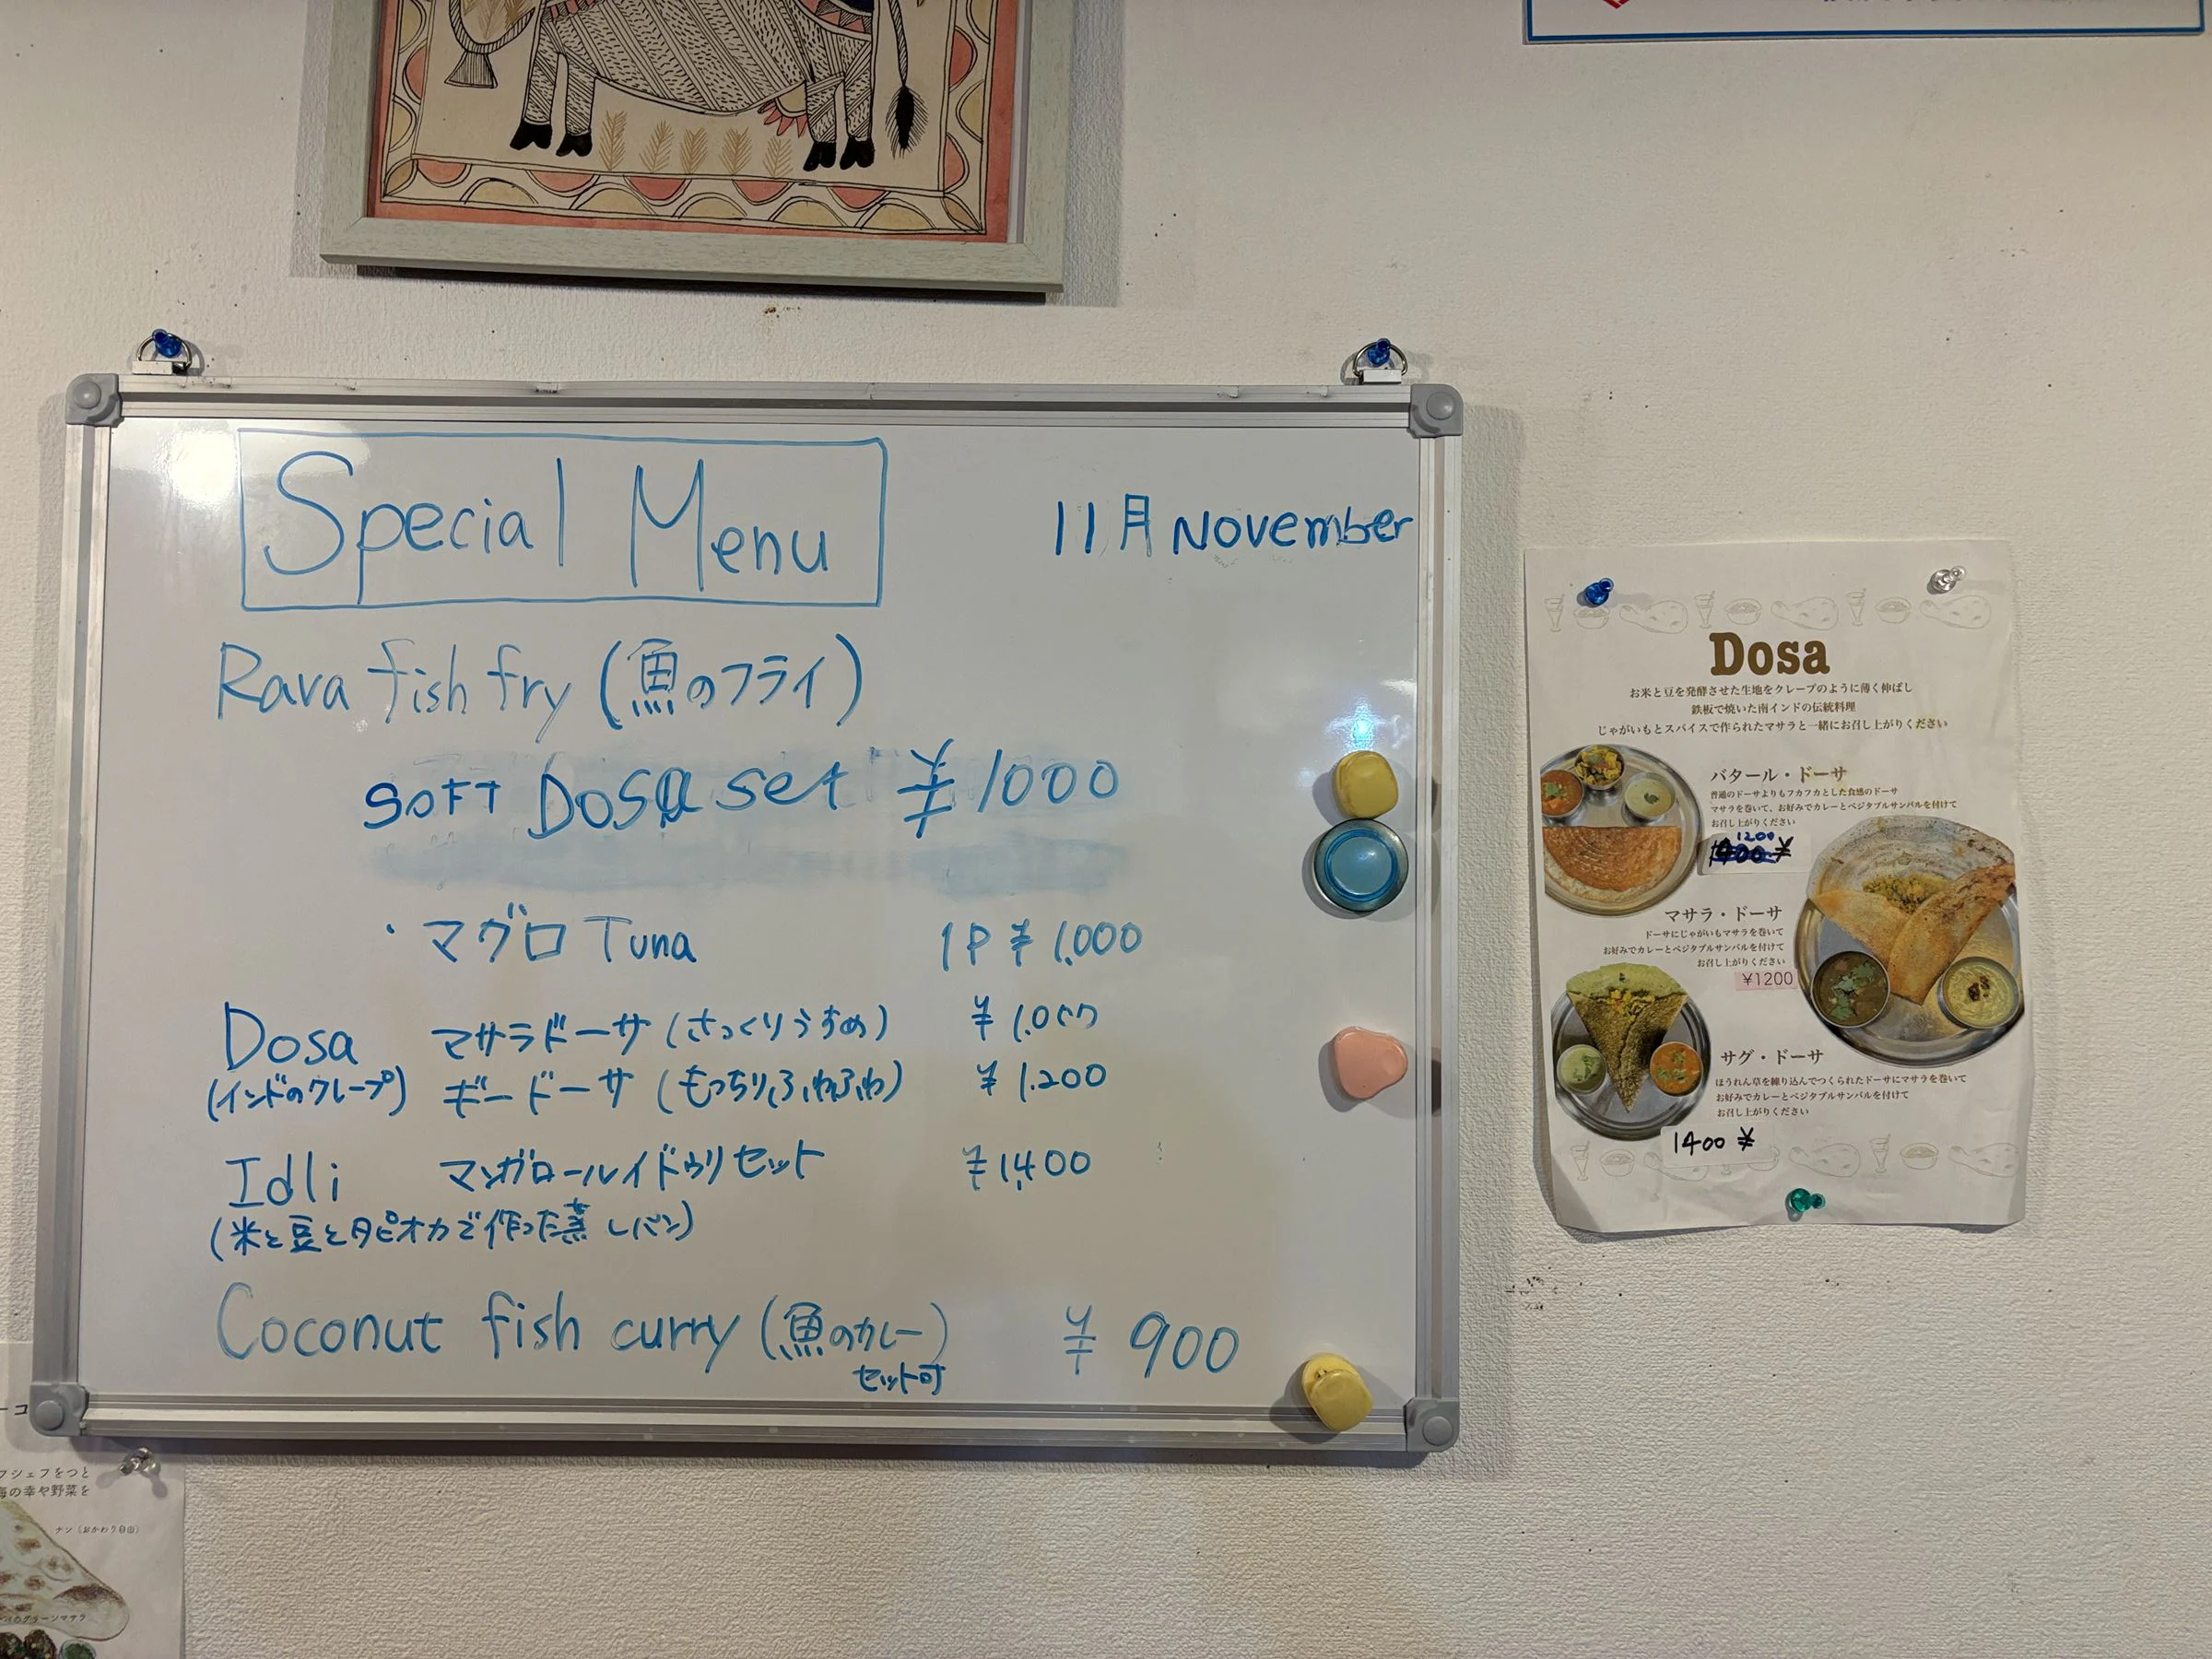 Special Menu
11月 November
Rava fish fry (魚のフライ)
SOFT DOSA set ¥1000
・マグロ Tuna 1P ¥1,000
Dosa マサラドーサ (さっくりうすめ) ¥1,000
(インドのクレープ) ギードーサ (もっちり,ふわふわ) ¥1,200
Idli マンガロールイドゥリセット ¥1,400
(米と豆とタピオカで作った蒸しパン)
Coconut fish curry (魚のカレー) ¥900
セット可
Dosa
お米と豆を発酵させた生地をクレープのように薄く伸ばし
鉄板で焼いた南インドの伝統料理
じゃがいもとスパイスで作られたマサラと一緒にお召し上がりください
バタール・ドーサ
普通のドーサよりもフカフカとした食感のドーサ
マサラを巻いて、お好みでカレーとベジタブルサンバルを付けて
お召し上がりください
1200
¥
マサラ・ドーサ
ドーサにじゃがいもマサラを巻いて
お好みでカレーとベジタブルサンバルを付けて
お召し上がりください
¥1200
サグ・ドーサ
ほうれん草を練り込んでつくられたドーサにマサラを巻いて
お好みでカレーとベジタブルサンバルを付けて
お召し上がりください
1400 ¥
ーコ
フシェフをつと
の幸や野菜を
ナン（おかわり自由）
グリーンマサラ